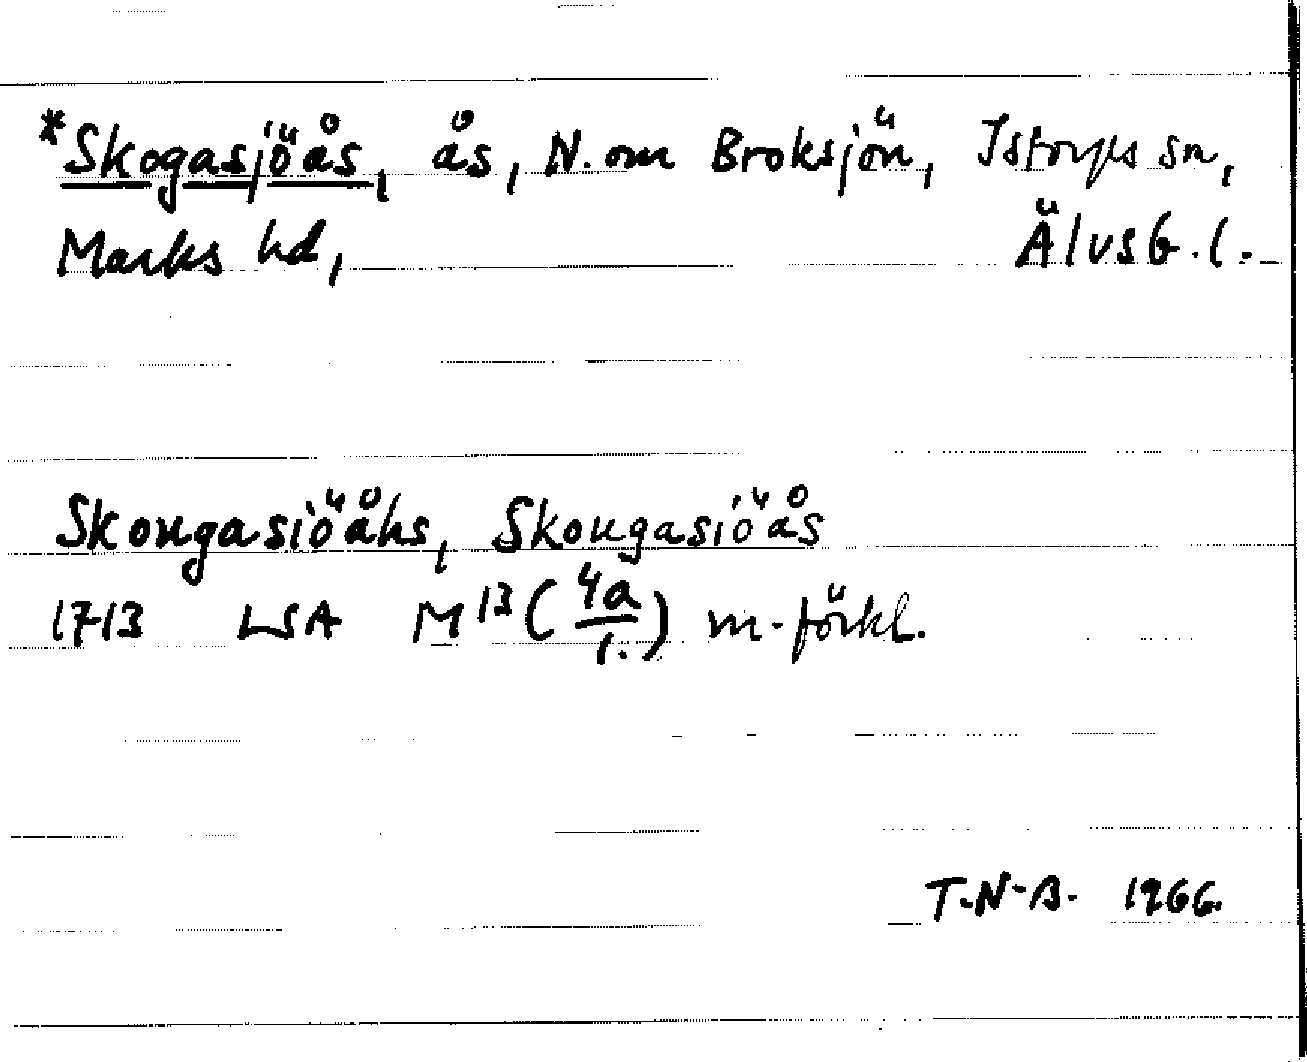 *Skogasjöås, ås, N. om Broksjön, Istorps sn,
Marks hd, Älvsb. l.
Skougasiöåhs, Skougasiöås
1713 LSA M13 (4a/1.) m. förkl.
T.N-B. 1966.